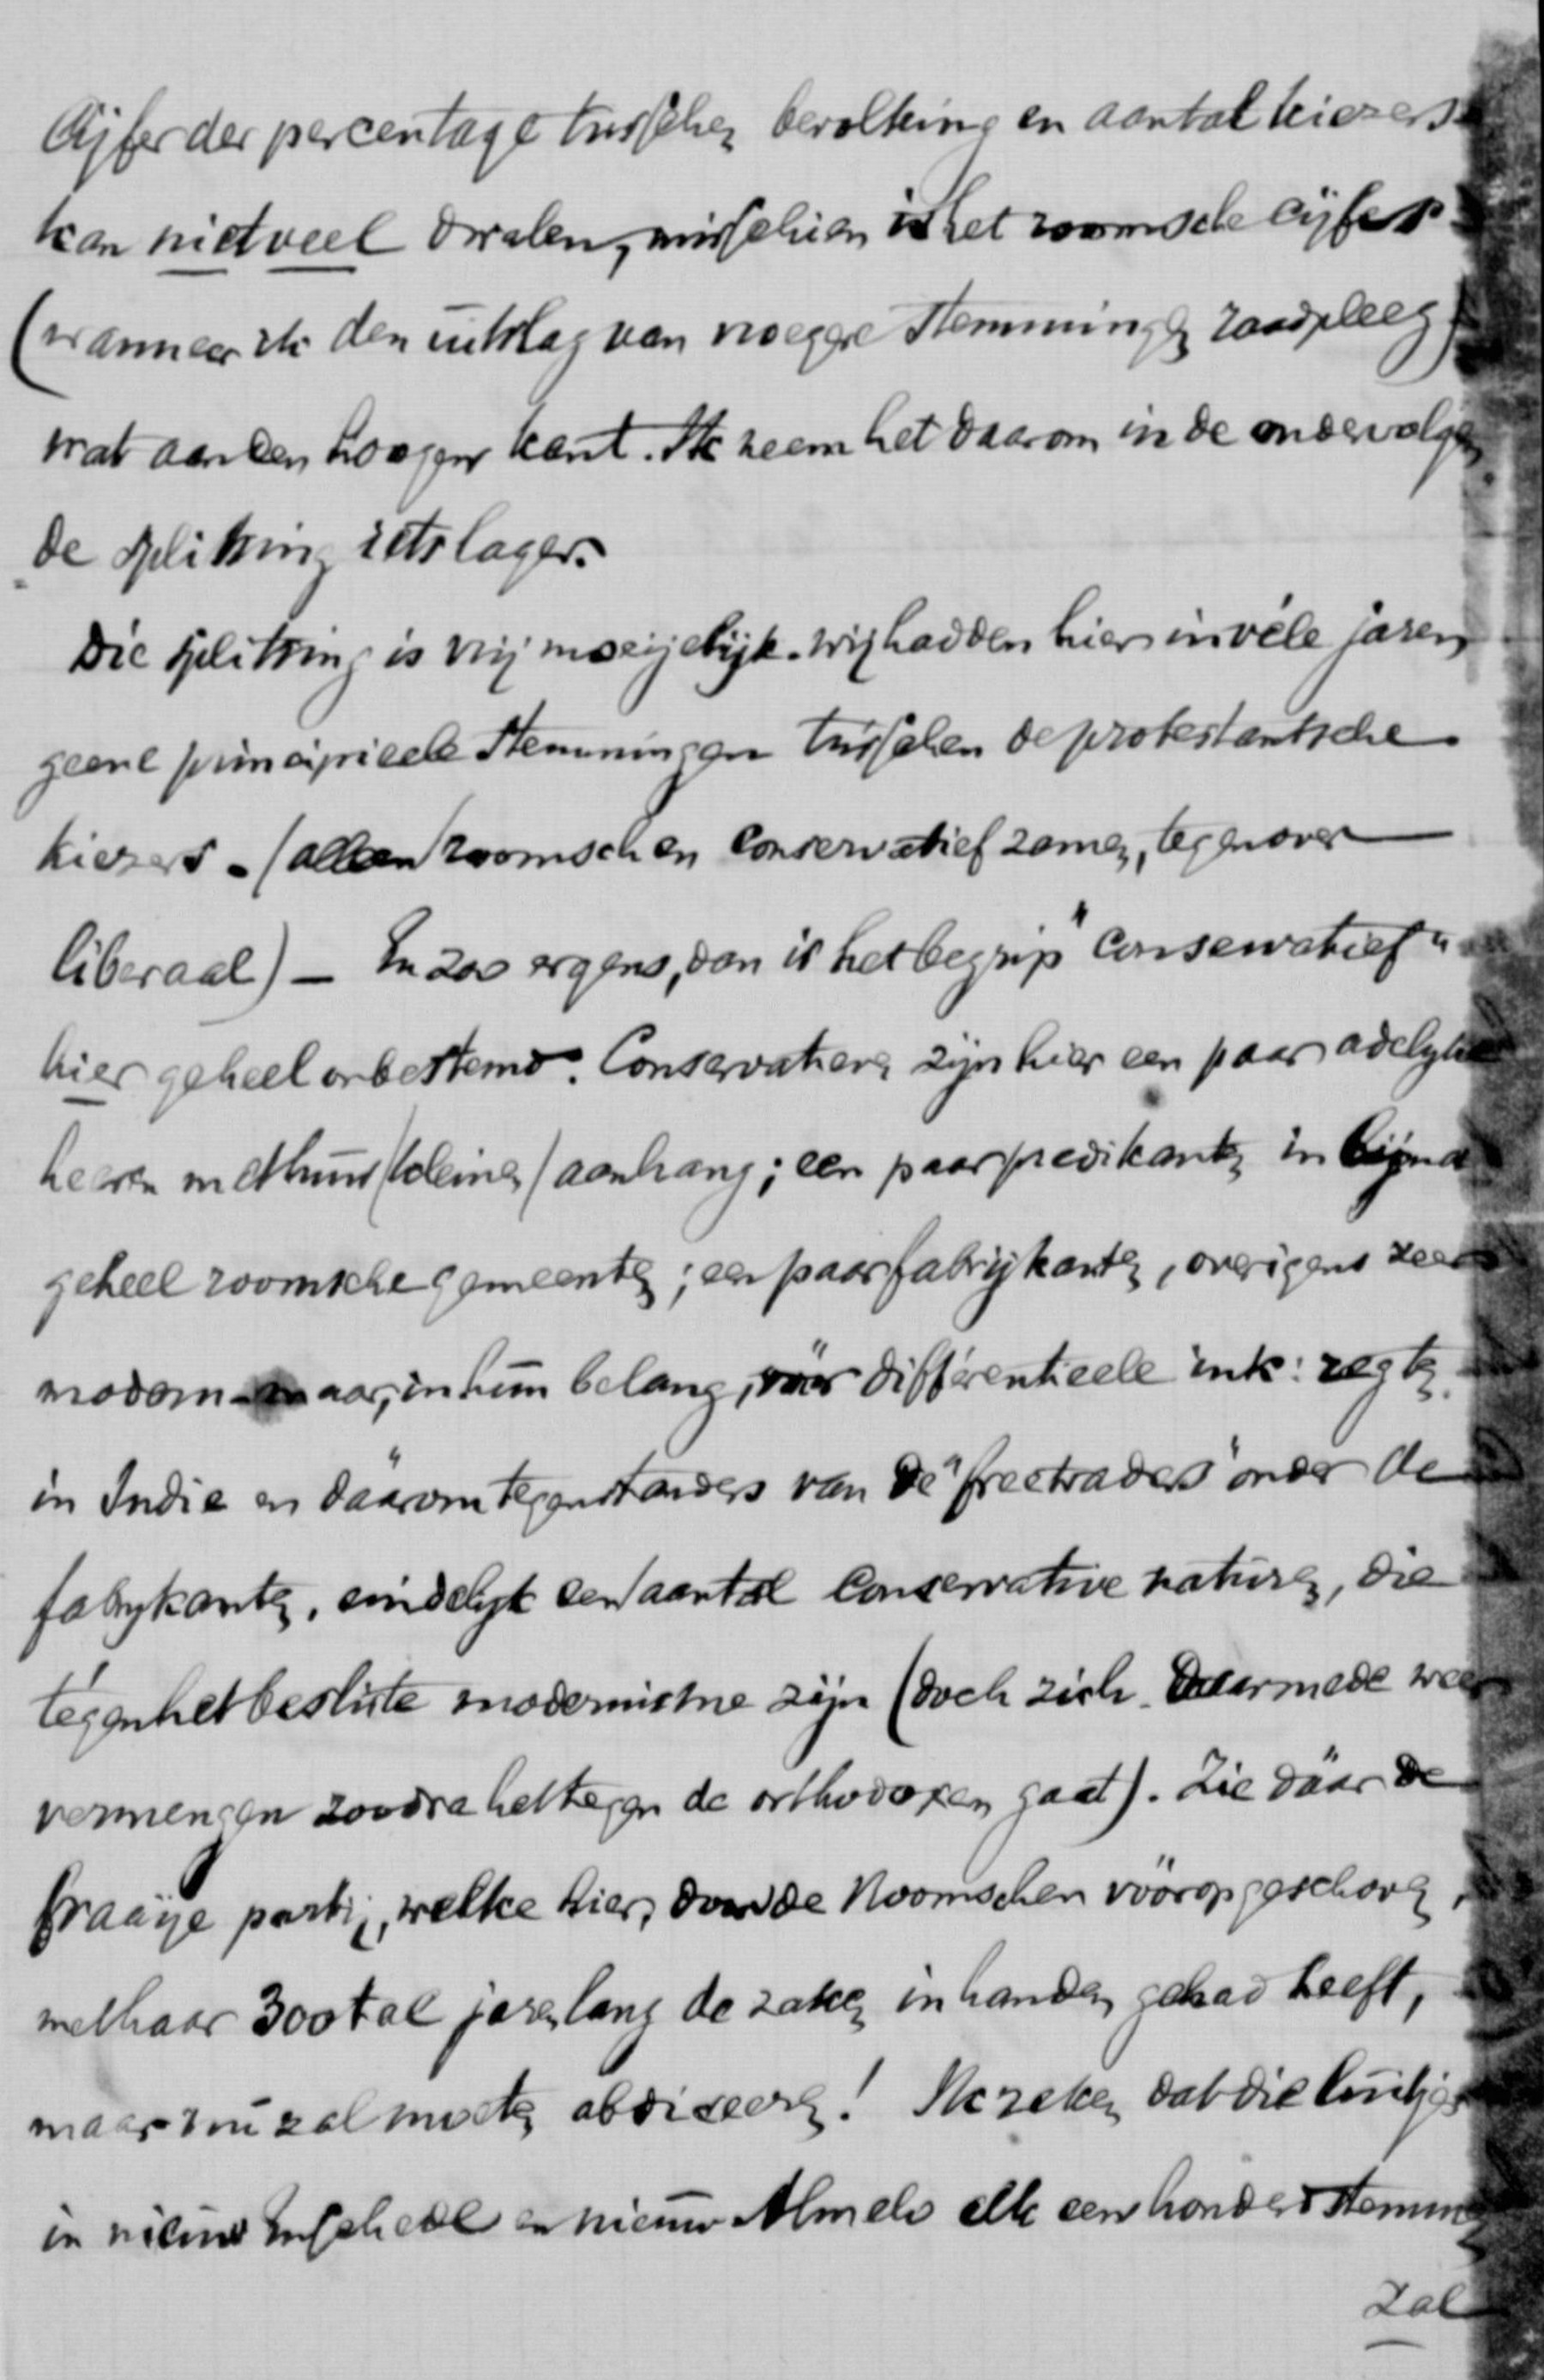 Cijfer der percentage tusschen bevolking en aantal kiezers
kan niet veel dwalen, misschien is het roomsche cijfer
(wanneer ik den uitslag van vroegere stemmingen raadpleeg)
wat aan den hoogen kant. Ik neem het daarom in de ondervolgen
de splitsing iets lager.
Die splitsing is vrij moeijelijk. Wij hadden hier in véle jaren
geene principieele stemmingen tusschen de protestantsche
kiezers. (alleen roomsch en conservatief zamen, tegenover
liberaal) – En zoo ergens, dan is het begrip "conservatief"
hier geheel onbestemd. Conservatieven zijn hier een paar adelyke
heeren met hun (kleinen) aanhang; een paar predikanten in bijna
geheel roomsche gemeenten; een paar fabrijkanten, overigens zeer
modern – maar, in hun belang, vóór differentieele ink: regten
in Indie en dáárom tegenstanders van de "freetraders" onder de
fabrykanten, eindelyk een aantal conservative naturen, die
tégen het besliste modernisme zijn (doch zich daarmede weer
vermengen zoodra het tegen de orthodoxen gaat). Zie dáár de
fraaije partij, welke hier, door de Roomschen vóóropgeschoven,
met haar 300tal jaren lang de zaken in handen gehad heeft,
maar nu zal moeten abdiceeren! Ik reken dat die luitjes
in nieuw Enschedé en nieuw Almelo elk een honderd stemmen
zal